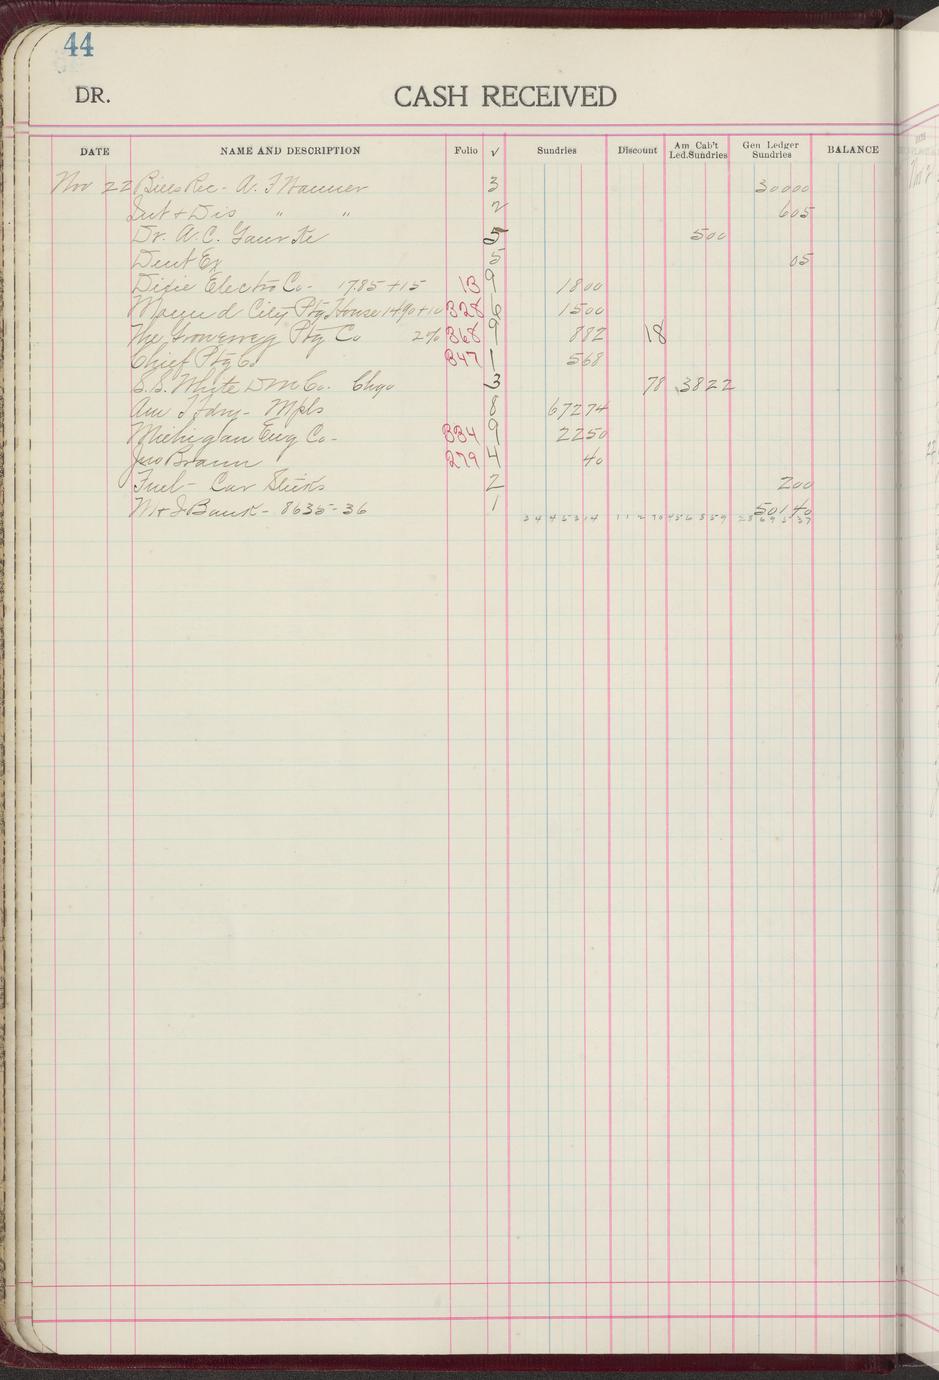 44
DR. CASH RECEIVED
DATE NAME AND DESCRIPTION Folio √ Sundries Discount Am Cab't Led.Sundries Gen Ledger Sundries BALANCE
Nov 22 Bills Rec - A. F Wanner 3 30000
Int + Dis " " 2 605
Dr. A. C. 5 500
Dent Ex 5 05
Dixie Electro Co - 17.85 + 15 13 9 1800
Mound City Ptg House 1490 + 10 328 6 1500
The Ptg Co 2% 368 9 882 18
Chief Ptg Co 347 1 568
S.S. White D M Co. Chgo 3 78 3822
Am T Fdry - Mpls 8 67274
Michigan Eng Co - 334 9 2250
Jno Braun 279 4 40
Fuel - Car 2 200
M + I Bank - 8635 - 36 1 50140